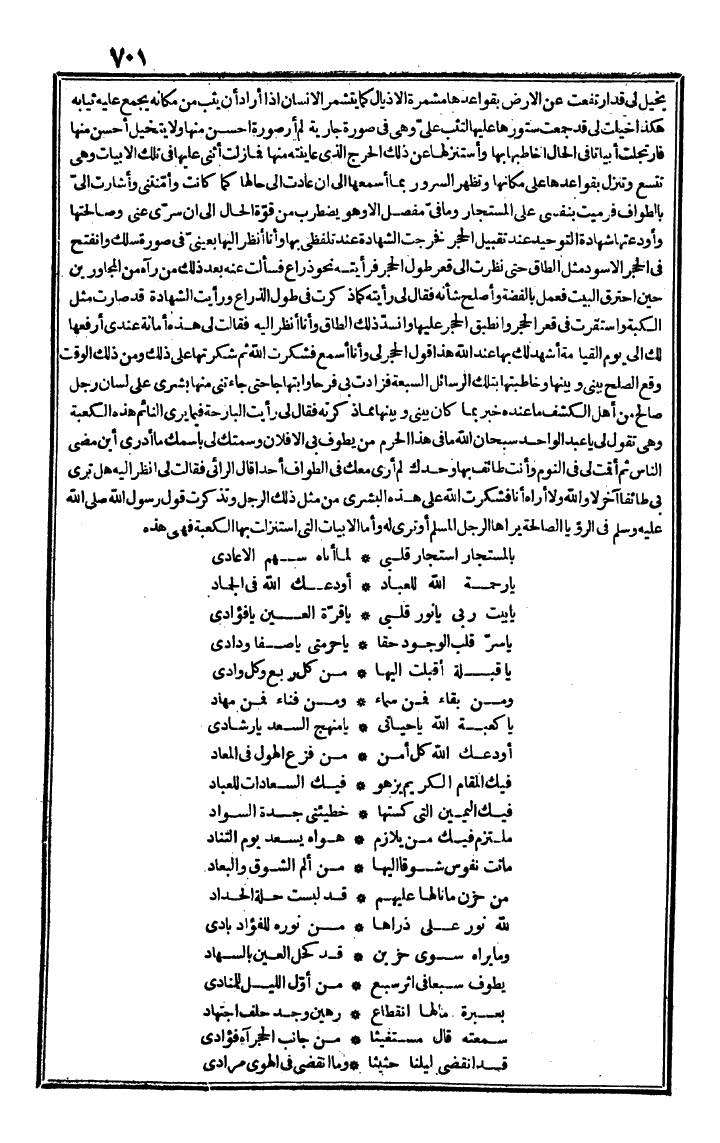 ٧٠١
يخيل لى قد ارتفعت عن الارض بقواعدها مشمرة الاذيال كما يتشمر الانسان اذا أراد أن يثب من مكانه يجمع عليه ثيابه
هكذا خيلت لى قد جمعت ستورها عليها لتثب علىّ وهى فى صورة جارية لم أر صورة احسن منها ولا يتخيل أحسن منها
فارتجلت أبياتا فى الحال اخاطبها بها وأستنزلها عن ذلك الحرج الذى عاينته منها فمازلت أثنى عليها فى تلك الابيات وهى
تتسع وتنزل بقواعدها على مكانها وتظهر السرور بما أسمعها الى ان عادت الى حالها كما كانت وأمّنتنى وأشارت الىّ
بالطواف فرميت بنفسى على المستجار ومافىّ مفصل الا وهو يضطرب من قوّة الحال الى ان سرّى عنى وصالحتها
وأودعتها شهادة التوحيد عند تقبيل الحجر فخرجت الشهادة عند تلفظى بها وأنا أنظر اليها بعينىّ فى صورة سلك وانفتح
فى الحجر الاسود مثل الطاق حتى نظرت الى قعر طول الحجر فرأيته نحو ذراع فسألت عنه بعد ذلك من رآه من المجاورين
حين احترق البيت فعمل بالفضة وأصلح شأنه فقال لى رأيته كما ذكرت فى طول الذراع ورأيت الشهادة قد صارت مثل
الكبة واستقرت فى قعر الحجر وانطبق الحجر عليها وانسدّ ذلك الطاق وأنا أنظر اليه فقالت لى هذه أمانة عندى أرفعها
لك الى يوم القيامة أشهد لك بها عند الله هذا قول الحجر لى وأنا أسمع فشكرت الله ثم شكرتها على ذلك ومن ذلك الوقت
وقع الصلح بينى وبينها وخاطبتها بتلك الرسائل السبعة فزادت بى فرحا وابتهاجا حتى جاءتنى منها بشرى على لسان رجل
صالح من أهل الكشف ما عنده خبر بما كان بينى وبينها مما ذكرته فقال لى رأيت البارحة فيما يرى النائم هذه الكعبة
وهى تقول لى يا عبد الواحد سبحان الله ما فى هذا الحرم من يطوف بى الا فلان وسمتك لى باسمك ما أدرى أين مضى
الناس ثم أقت لى فى النوم وأنت طائف بها وحدك لم أرى معك فى الطواف أحدا قال الرائى فقالت لى انظر اليه هل ترى
بى طائفا آخر لا والله ولا أراه أنا فشكرت الله على هذه البشرى من مثل ذلك الرجل وتذكرت قول رسول الله صلى الله
عليه وسلم فى الرؤيا الصالحة يراها الرجل المسلم أو ترى له وأما الابيات التى استنزلت بها الكعبة فهى هذه
بالمستجار استجار قلبى * لما أتاه سهم الاعادى
يارحمة الله للعباد * أودعك الله فى الجماد
يابيت ربى يانور قلبى * ياقرّة العين يافؤادى
ياسرّ قلب الوجود حقا * ياحرمتى ياصفا ودادى
ياقبلة أقبلت اليها * من كل ربع وكل وادى
ومن بقاء فمن سماء * ومن فناء فمن مهاد
ياكعبة الله ياحياتى * يامنهج السعد يارشادى
أودعك الله كل أمن * من فزع الهول فى المعاد
فيك المقام الكريم يزهو * فيك السعادات للعباد
فيك اليمين التى كستها * خطيئتى جدة السواد
ملتزم فيك من يلازم * هواه يسعد يوم التناد
ماتت نفوس شوقا اليها * من ألم الشوق والبعاد
من حزن مانالها عليهم * قد لبست حلة الحداد
لله نور على ذراها * من نوره للفؤاد بادى
ومايراه سوى حزين * قد كحل العين بالسهاد
يطوف سبعا فى اثر سبع * من أوّل الليل للمنادى
بعبرة مالها انقطاع * رهين وجد حلف اجتهاد
سمعته قال مستغيثا * من جانب الحجر آه فؤادى
قد انقضى ليلنا حثيثا * وما انقضى فى الهوى مرادى